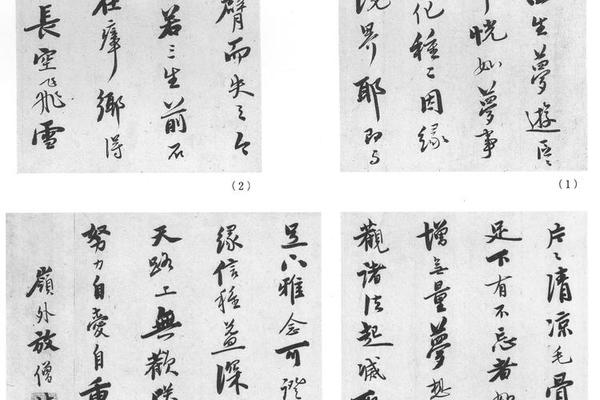 生夢遊
恍如夢事
化種〻因緣
境界耶即与
(1)
臂而失之今
若三生前石
在瘴鄉得
長空飛雪
(2)
片〻清涼毛骨
足下有不忘者如
增無量夢想
觀諸法起滅
足下雅念可證
緣信種益深
天路上無歡
努力自愛自重
嶺外放僧